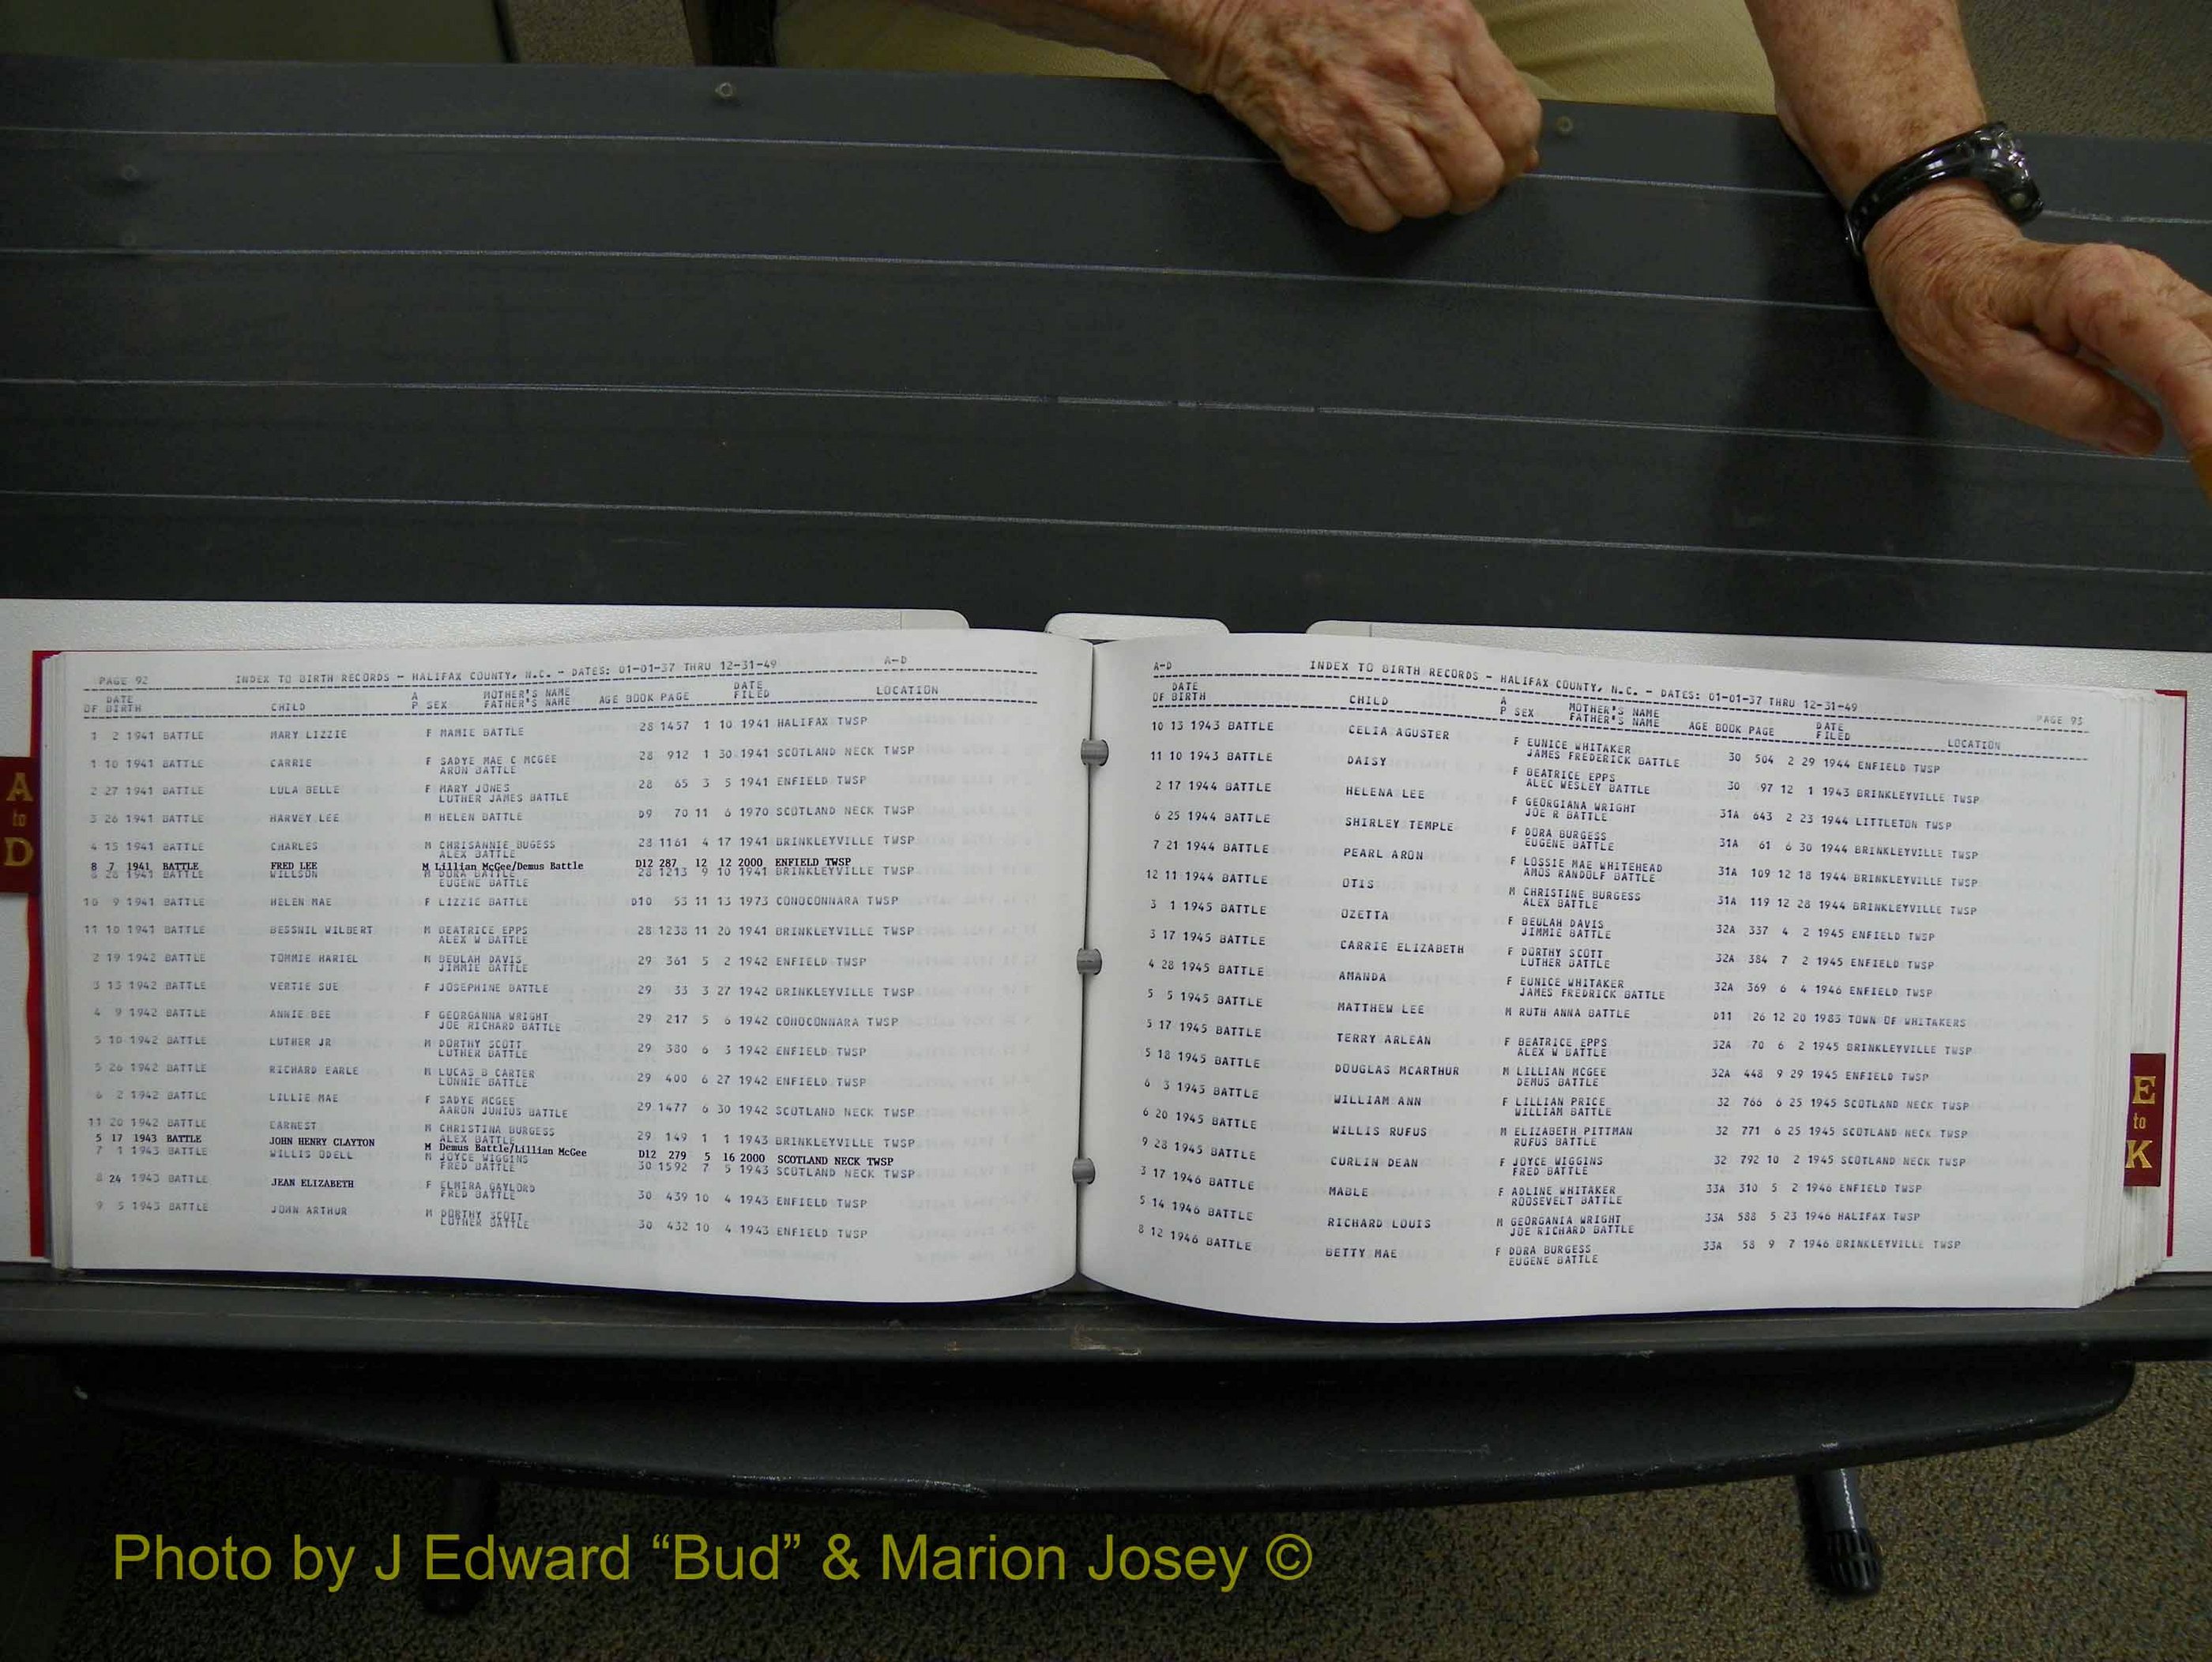 PAGE 92 INDEX TO BIRTH RECORDS - HALIFAX COUNTY, N.C. - DATES: 01-01-37 THRU 12-31-49 A-D
DATE A MOTHER'S NAME DATE
OF BIRTH CHILD P SEX FATHER'S NAME AGE BOOK PAGE FILED LOCATION
1 2 1941 BATTLE MARY LIZZIE F MAMIE BATTLE 28 1457 1 10 1941 HALIFAX TWSP
1 10 1941 BATTLE CARRIE F SADYE MAE C MCGEE 28 912 1 30 1941 SCOTLAND NECK TWSP
ARON BATTLE
2 27 1941 BATTLE LULA BELLE F MARY JONES 28 65 3 5 1941 ENFIELD TWSP
LUTHER JAMES BATTLE
3 26 1941 BATTLE HARVEY LEE M HELEN BATTLE D9 70 11 6 1970 SCOTLAND NECK TWSP
4 15 1941 BATTLE CHARLES M CHRISANNIE BUGESS 28 1161 4 17 1941 BRINKLEYVILLE TWSP
ALEX BATTLE
8 7 1941 BATTLE FRED LEE M Lillian McGee/Demus Battle D12 287 12 12 2000 ENFIELD TWSP
8 28 1941 BATTLE WILLSON M DORA BATTLE 28 1213 9 10 1941 BRINKLEYVILLE TWSP
EUGENE BATTLE
10 9 1941 BATTLE HELEN MAE F LIZZIE BATTLE D10 53 11 13 1973 CONOCONNARA TWSP
11 10 1941 BATTLE BESSNIL WILBERT M BEATRICE EPPS 28 1238 11 20 1941 BRINKLEYVILLE TWSP
ALEX W BATTLE
2 19 1942 BATTLE TOMMIE HARIEL M BEULAH DAVIS 29 361 5 2 1942 ENFIELD TWSP
JIMMIE BATTLE
3 13 1942 BATTLE VERTIE SUE F JOSEPHINE BATTLE 29 33 3 27 1942 BRINKLEYVILLE TWSP
4 9 1942 BATTLE ANNIE BEE F GEORGANNA WRIGHT 29 217 5 6 1942 CONOCONNARA TWSP
JOE RICHARD BATTLE
5 10 1942 BATTLE LUTHER JR M DORTHY SCOTT 29 380 6 3 1942 ENFIELD TWSP
LUTHER BATTLE
5 26 1942 BATTLE RICHARD EARLE M LUCAS B CARTER 29 400 6 27 1942 ENFIELD TWSP
LONNIE BATTLE
6 2 1942 BATTLE LILLIE MAE F SADYE MCGEE 29 1477 6 30 1942 SCOTLAND NECK TWSP
AARON JUNIUS BATTLE
11 20 1942 BATTLE EARNEST M CHRISTINA BURGESS 29 149 1 1 1943 BRINKLEYVILLE TWSP
ALEX BATTLE
5 17 1943 BATTLE JOHN HENRY CLAYTON M Demus Battle/Lillian McGee D12 279 5 16 2000 SCOTLAND NECK TWSP
7 1 1943 BATTLE WILLIS ODELL M JOYCE WIGGINS 30 1592 7 5 1943 SCOTLAND NECK TWSP
FRED BATTLE
8 24 1943 BATTLE JEAN ELIZABETH F ELMIRA GAYLORD 30 439 10 4 1943 ENFIELD TWSP
FRED BATTLE
9 5 1943 BATTLE JOHN ARTHUR M DORTHY SCOTT 30 432 10 4 1943 ENFIELD TWSP
LUTHER BATTLE
A-D INDEX TO BIRTH RECORDS - HALIFAX COUNTY, N.C. - DATES: 01-01-37 THRU 12-31-49 PAGE 93
DATE A MOTHER'S NAME DATE
OF BIRTH CHILD P SEX FATHER'S NAME AGE BOOK PAGE FILED LOCATION
10 13 1943 BATTLE CELIA AGUSTER F EUNICE WHITAKER 30 504 2 29 1944 ENFIELD TWSP
JAMES FREDERICK BATTLE
11 10 1943 BATTLE DAISY F BEATRICE EPPS 30 97 12 1 1943 BRINKLEYVILLE TWSP
ALEC WESLEY BATTLE
2 17 1944 BATTLE HELENA LEE F GEORGIANA WRIGHT 31A 643 2 23 1944 LITTLETON TWSP
JOE R BATTLE
6 25 1944 BATTLE SHIRLEY TEMPLE F DORA BURGESS 31A 61 6 30 1944 BRINKLEYVILLE TWSP
EUGENE BATTLE
7 21 1944 BATTLE PEARL ARON F LOSSIE MAE WHITEHEAD 31A 109 12 18 1944 BRINKLEYVILLE TWSP
AMOS RANDOLF BATTLE
12 11 1944 BATTLE OTIS M CHRISTINE BURGESS 31A 119 12 28 1944 BRINKLEYVILLE TWSP
ALEX BATTLE
3 1 1945 BATTLE OZETTA F BEULAH DAVIS 32A 337 4 2 1945 ENFIELD TWSP
JIMMIE BATTLE
3 17 1945 BATTLE CARRIE ELIZABETH F DORTHY SCOTT 32A 384 7 2 1945 ENFIELD TWSP
LUTHER BATTLE
4 28 1945 BATTLE AMANDA F EUNICE WHITAKER 32A 369 6 4 1946 ENFIELD TWSP
JAMES FREDRICK BATTLE
5 5 1945 BATTLE MATTHEW LEE M RUTH ANNA BATTLE D11 26 12 20 1983 TOWN OF WHITAKERS
5 17 1945 BATTLE TERRY ARLEAN F BEATRICE EPPS 32A 70 6 2 1945 BRINKLEYVILLE TWSP
ALEX W BATTLE
5 18 1945 BATTLE DOUGLAS MCARTHUR M LILLIAN MCGEE 32A 448 9 29 1945 ENFIELD TWSP
DEMUS BATTLE
6 3 1945 BATTLE WILLIAM ANN F LILLIAN PRICE 32 766 6 25 1945 SCOTLAND NECK TWSP
WILLIAM BATTLE
6 20 1945 BATTLE WILLIS RUFUS M ELIZABETH PITTMAN 32 771 6 25 1945 SCOTLAND NECK TWSP
RUFUS BATTLE
9 28 1945 BATTLE CURLIN DEAN F JOYCE WIGGINS 32 792 10 2 1945 SCOTLAND NECK TWSP
FRED BATTLE
3 17 1946 BATTLE MABLE F ADLINE WHITAKER 33A 310 5 2 1946 ENFIELD TWSP
ROOSEVELT BATTLE
5 14 1946 BATTLE RICHARD LOUIS M GEORGANIA WRIGHT 33A 588 5 23 1946 HALIFAX TWSP
JOE RICHARD BATTLE
8 12 1946 BATTLE BETTY MAE F DORA BURGESS 33A 58 9 7 1946 BRINKLEYVILLE TWSP
EUGENE BATTLE
A
to
D
E
to
K
Photo by J Edward “Bud” & Marion Josey ©